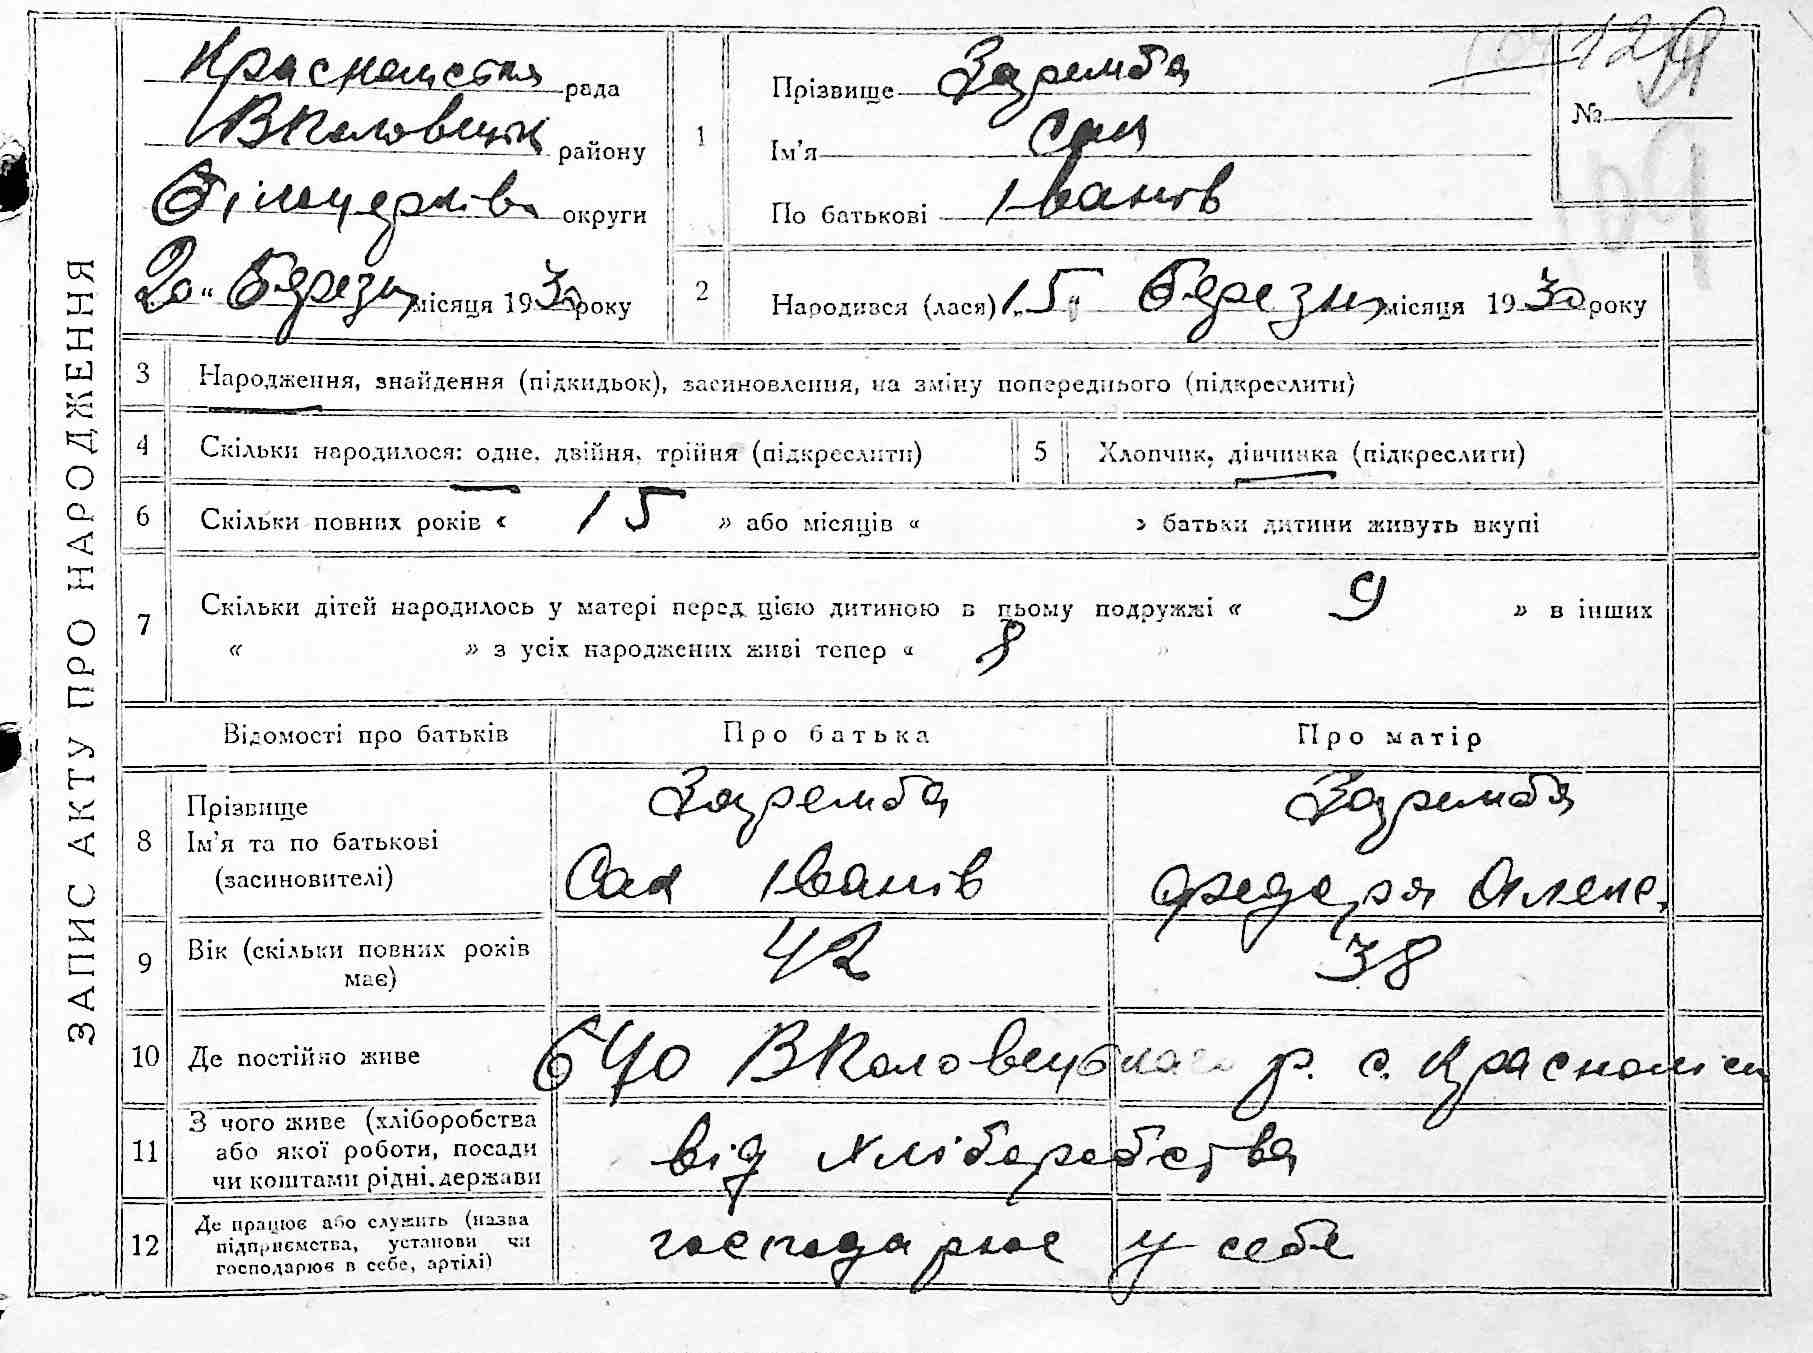 ЗАПИС АКТУ ПРО НАРОДЖЕННЯ
рада
району
Білоцерків округи
20 “ Березня місяця 1930 року
1
Прізвище Заремба
Ім’я Сак
По батькові Іванів
№ 129
2 Народився (лася) „15“ Березня місяця 1930 року
3 Народження, знайдення (підкидьок), засиновлення, на зміну попереднього (підкреслити)
4 Скільки народилося: одне, двійня, трійня (підкреслити) 5 Хлопчик, дівчинка (підкреслити)
6 Скільки повних років « 15 » або місяців « » батьки дитини живуть вкупі
7 Скільки дітей народилось у матері перед цією дитиною в цьому подружжі « 9 » в інших
« » з усіх народжених живі тепер « 8 »
Відомості про батьків Про батька Про матір
8 Прізвище
Ім’я та по батькові
(засиновителі)
Заремба Заремба
Сак Іванів Федора Алекс.
9 Вік (скільки повних років
має)
42 38
10 Де постійно живе БЧО р. с. Красноліси
11 З чого живе (хліборобства
або якої роботи, посади
чи коштами рідні, держави
від хліборобства
12 Де працює або служить (назва
підприємства, установи чи
господарює в себе, артілі)
господарює у себе